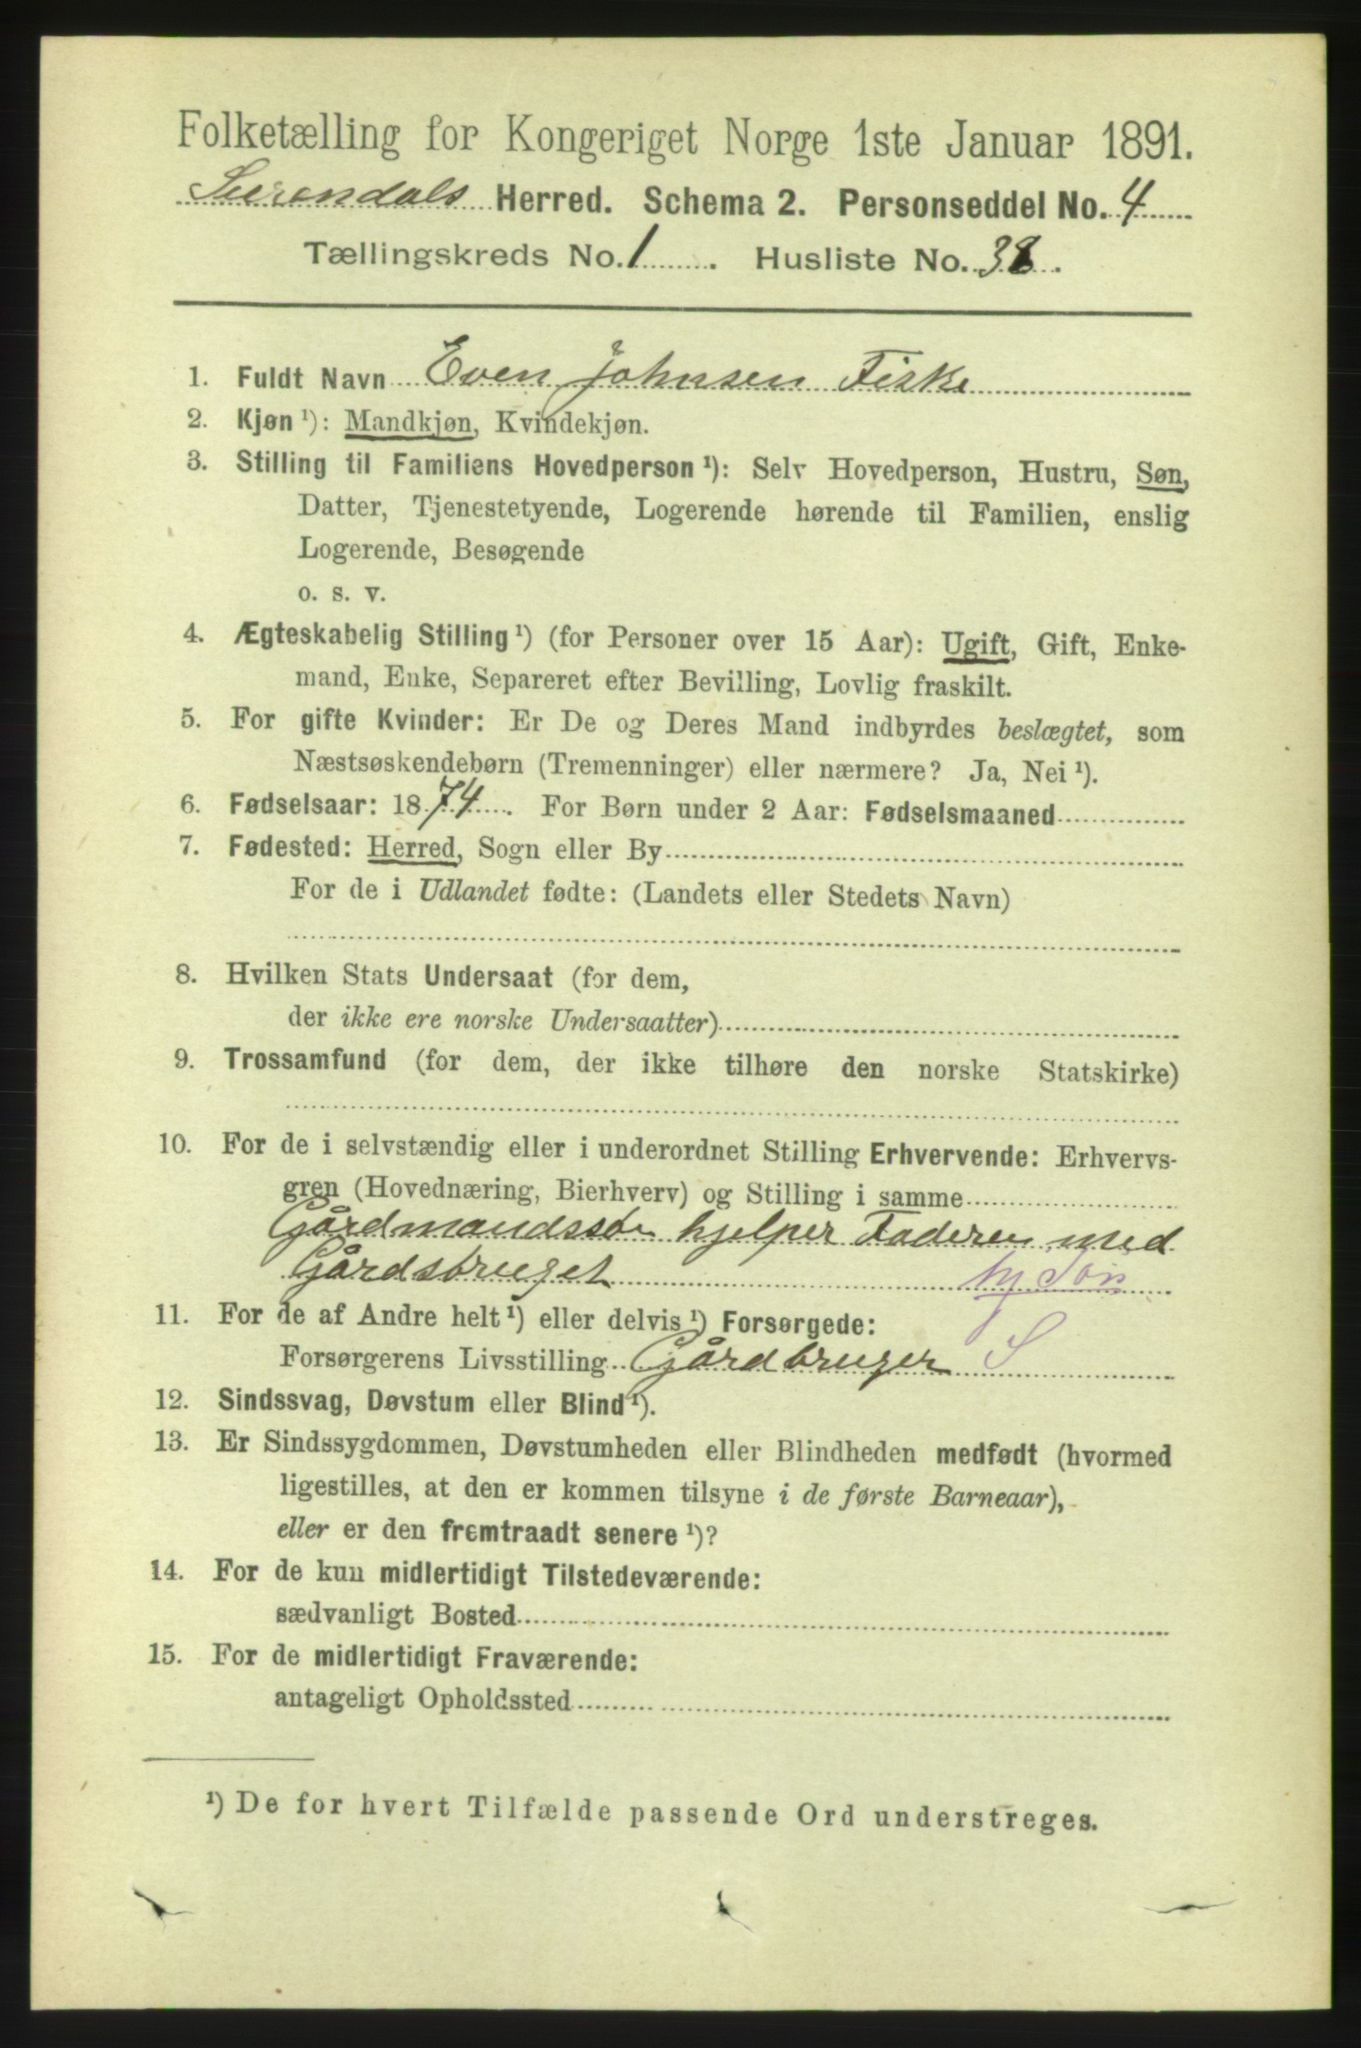 Folketælling for Kongeriget Norge 1ste Januar 1891.
Surendals Herred. Schema 2. Personseddel No. 4
Tællingskreds No. 1. Husliste No. 38.
1. Fuldt Navn Even Johnsen Fiske
2. Kjøn ¹): Mandkjøn, Kvindekjøn.
3. Stilling til Familiens Hovedperson ¹): Selv Hovedperson, Hustru, Søn,
Datter, Tjenestetyende, Logerende hørende til Familien, enslig
Logerende, Besøgende
o. s. v.
4. Ægteskabelig Stilling ¹) (for Personer over 15 Aar): Ugift, Gift, Enke-
mand, Enke, Separeret efter Bevilling, Lovlig fraskilt.
5. For gifte Kvinder: Er De og Deres Mand indbyrdes beslægtet, som
Næstsøskendebørn (Tremenninger) eller nærmere? Ja, Nei ¹).
6. Fødselsaar: 1874. For Børn under 2 Aar: Fødselsmaaned
7. Fødested: Herred, Sogn eller By
For de i Udlandet fødte: (Landets eller Stedets Navn)
8. Hvilken Stats Undersaat (for dem,
der ikke ere norske Undersaatter)
9. Trossamfund (for dem, der ikke tilhøre den norske Statskirke)
10. For de i selvstændig eller i underordnet Stilling Erhvervende: Erhvervs-
gren (Hovednæring, Bierhverv) og Stilling i samme
Gårdmandssøn hjelper Faderen med
Gårdsbruget hj. Søn
11. For de af Andre helt ¹) eller delvis ¹) Forsørgede:
Forsørgerens Livsstilling Gårdbruger S
12. Sindssvag, Døvstum eller Blind ¹).
13. Er Sindssygdommen, Døvstumheden eller Blindheden medfødt (hvormed
ligestilles, at den er kommen tilsyne i de første Barneaar),
eller er den fremtraadt senere ¹)?
14. For de kun midlertidigt Tilstedeværende:
sædvanligt Bosted
15. For de midlertidigt Fraværende:
antageligt Opholdssted
¹) De for hvert Tilfælde passende Ord understreges.